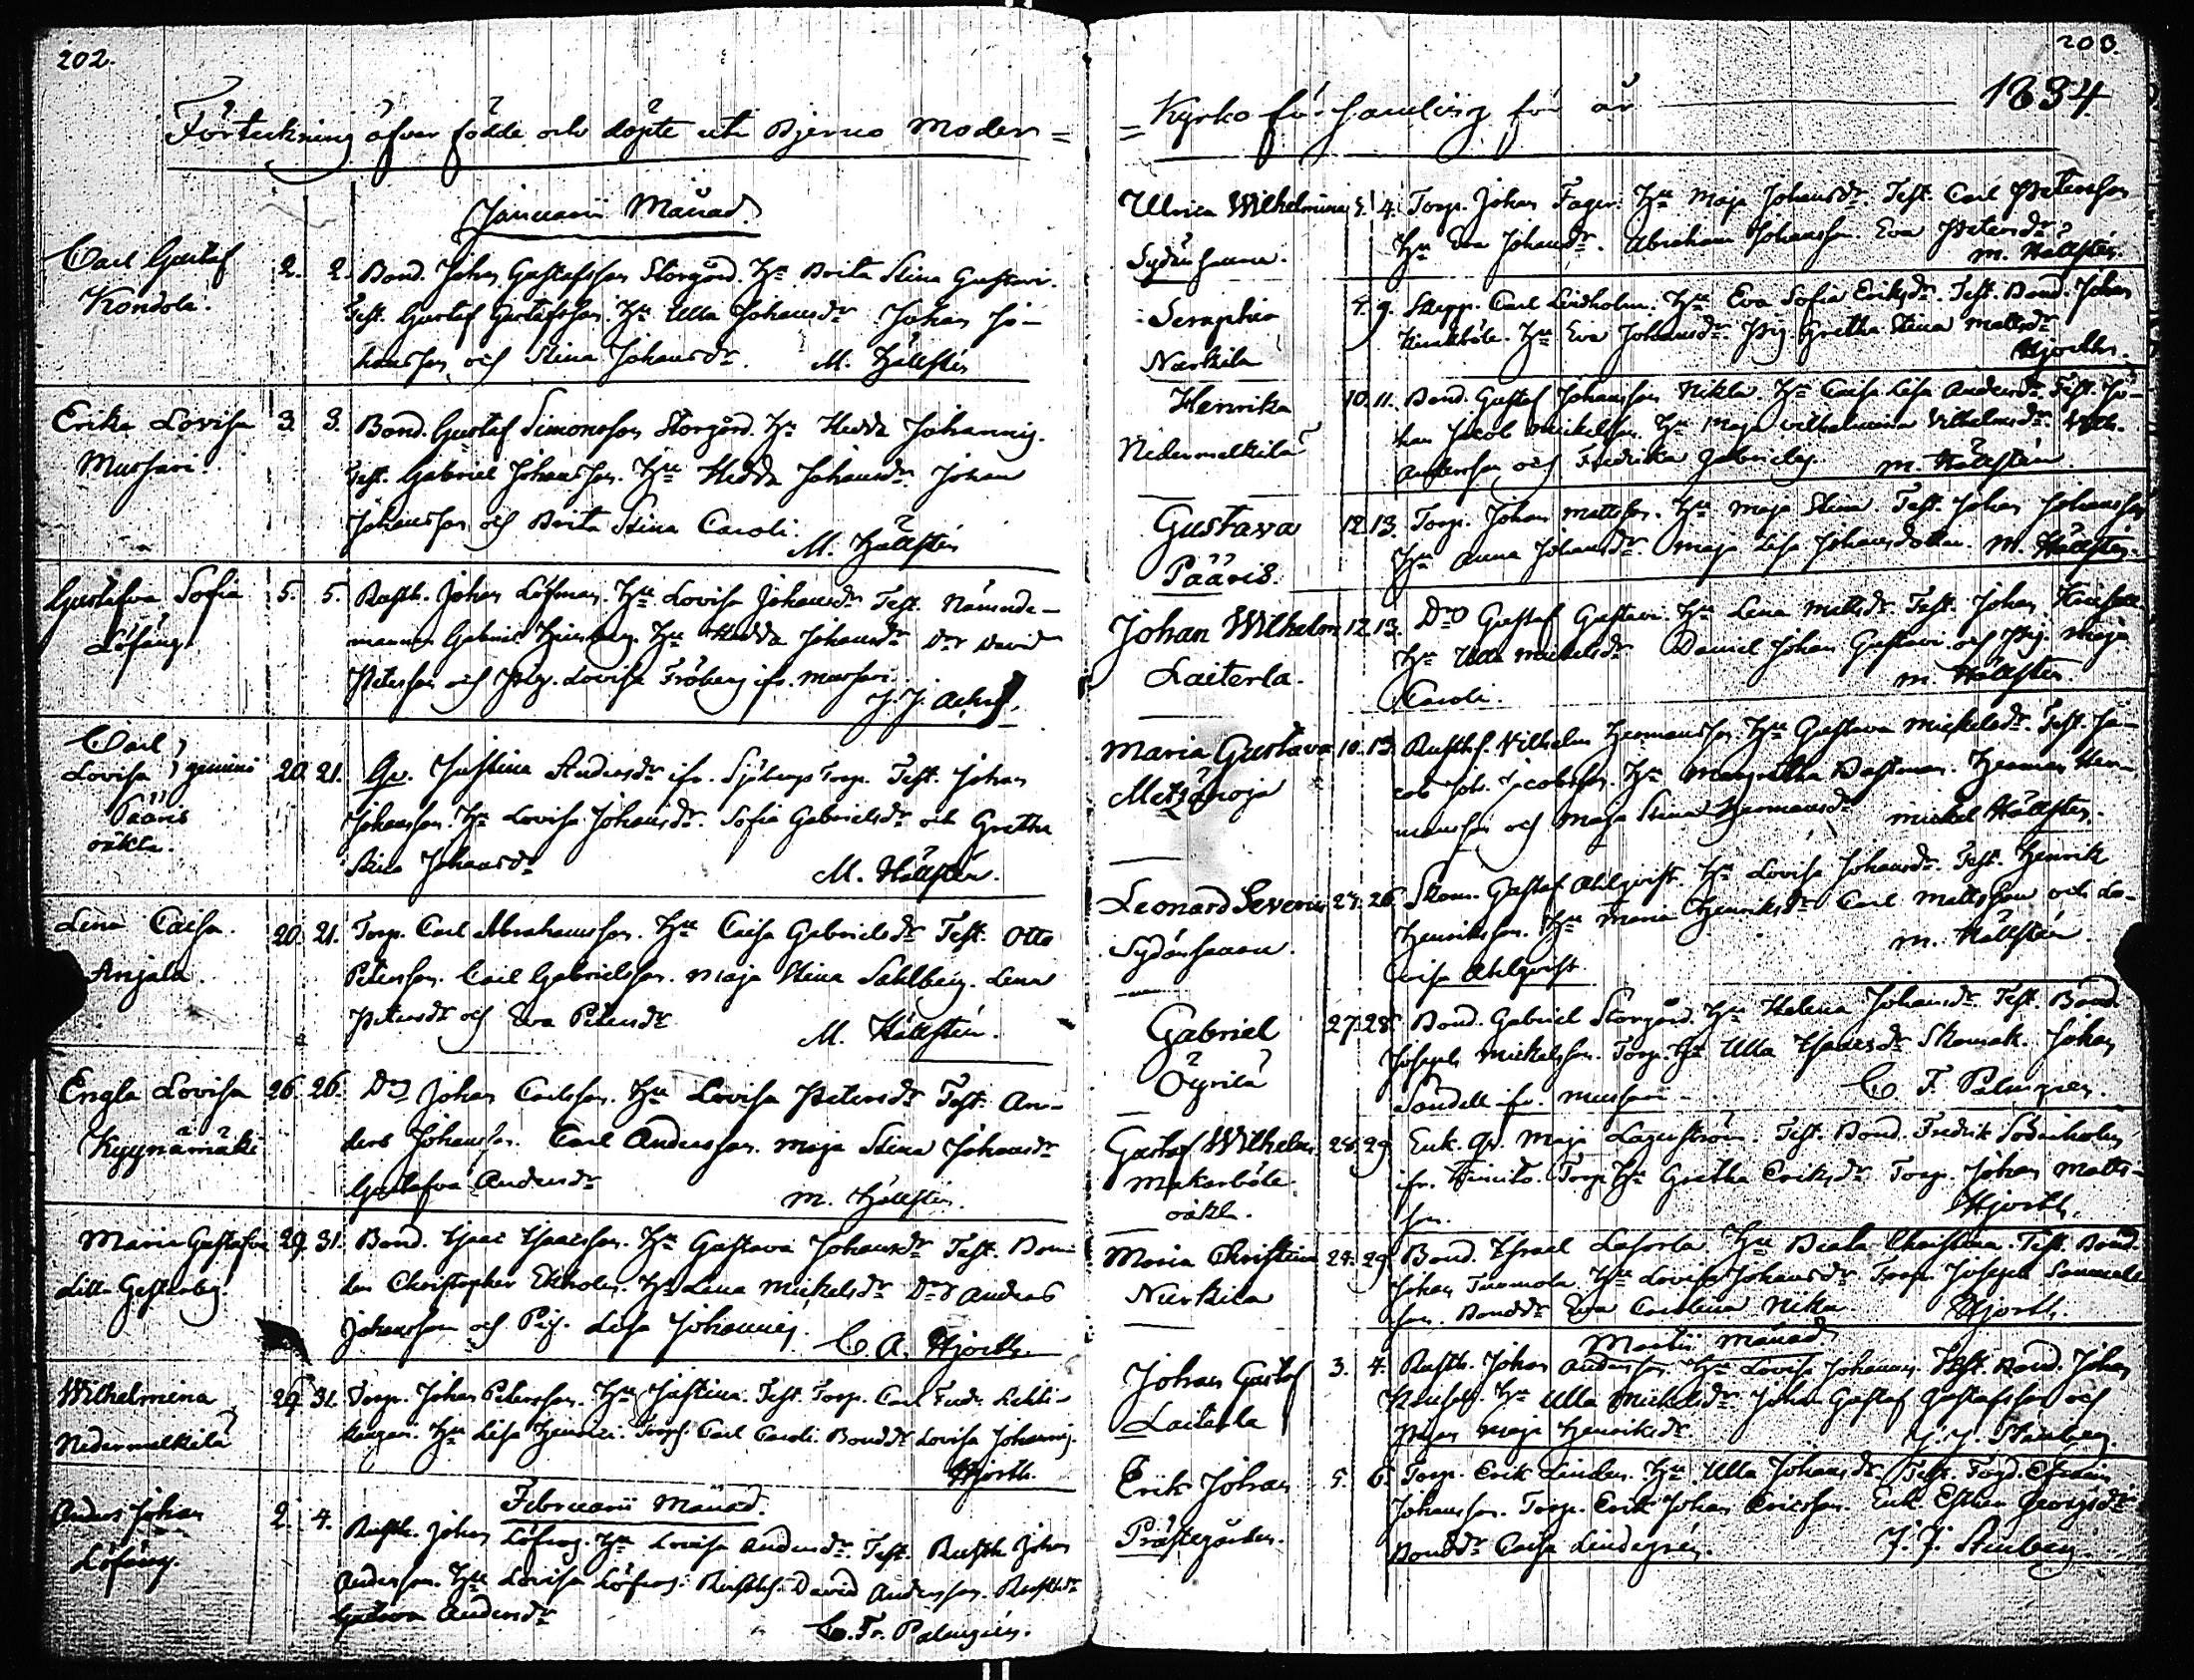 202.
Förteckning öfver födde och döpte uti Bjerno Moder =
Januarii Månad.
Carl Gustaf
Kondola.
2. 2. Bond. Johan Gustafsson Storgård. Hu Brita Stina Gustavi.
Test. Gustaf Gustafsson. Hu Ulla Johansdr Johan Jo-
hansson och Stina Johansdr. M. Hällsten
Erika Lovisa
Mussari
3. 3. Bond. Gustaf Simonsson Storgård. Hu Hedda Johannis.
Test. Gabriel Johansson. Hu Hedda Johansdr Johan
Johansson och Brita Stina Caroli.
M. Hällsten
Gustafva Sofia
Löfäng
5. 5. Rusth. Johan Löfman. Hu Lovisa Johansdr Test. Nämnde-
mannen Gabriel Hu Hedda Johansdr Dr David
Petersson och Pig. Lovisa Fröberg ifr. Mussari.
J. J.
Carl
Lovisa gemini
Pääris
oäkta.
20. 21. Qv. Justina Andersdr ifr. Sjöbergs Torp. Test. Johan
Johansson. Hu Lovisa Johansdr. Sofia Gabrielsdr och Gretha
Stina Johansdr M. Hällsten.
Lena Caisa.
Anjala.
20. 21. Torp. Carl Abrahamsson. Hu Caisa Gabrielsdr Test. Otto
Petersson. Carl Gabrielsson. Maja Stina Sahlberg. Lena
Petersdr och Eva Petersdr
M. Hällsten.
Engla Lovisa
Kyynämäki
26. 26. Do Johan Carlsson. Hu Lovisa Petersdr Test. An-
ders Johansson. Carl Andersson. Maja Stina Johansdr
Gustafva Andersdr
M. Hällsten.
Maria Gustafva
Lilla Gesterby
29. 31. Bond. Isaac Isaacsson. Hu Gustava Johansdr Test. Bon-
den Christopher Ekholm. Hu Lena Mickelsdr Dr Anders
Johansson och Pig. Lisa Johannis.
C. A. Hjorth.
Wilhelmina
Nedermelkilä
29. 31. Torp. Johan Petersson. Hu Justina. Test. Torp. Carl Fredr. Lehti-
kangas. Hu Lisa Henrici. Torps. Carl Caroli. Bonddr Lovisa Johannis.
Hjorth.
Februarii Månad.
Anders Johan
Löfäng.
2. 4. Rusth. Johan Löfroos. Hu Lovisa Andersdr. Test. Rusth. Johan
Andersson. Hu Lovisa Löfroos. Rusths. David Andersson. Rusthdr
Gustava Andersdr
C. Fr. Palmgren.
203.
= Kyrko församling för år 1834
Ulrica Wilhelmina
Sydänsaura.
3. 4. Torp. Johan Fager. Hu Maja Johansdr. Test. Carl Petersson
Hu Eva Johansdr. Abraham Johansson. Eva Petersdr
M. Hällsten.
Seraphia
Nurkila
4. 9. Skepp. Carl Lindholm. Hu Eva Sofia Eriksdr. Test. Bond. Johan
Hu Eva Johansdr. Pig Gretha Stina Mattsdr
Hjorth.
Henrika
Nedermelkilä
10. 11. Bond. Gustaf Johansson Nikla. Hu Caisa Lisa Andersdr. Test. Jo-
han Jacob Mickelsson. Hu Maja Vilhelmina Vilhelmsdr.
Andersson och Fredrika Gabrielis. M. Hällsten.
Gustava
Pääris.
12. 13. Torp. Johan Mattsson. Hu Maja Stina. Test. Johan Johansson
Hu Anna Johansdr. Maja Lisa Johansdotter. M. Hällsten.
Johan Wilhelm
Laiterla.
12. 13. Do Gustaf Gustavi. Hu Lena Mattsdr. Test. Johan
Hu Ulla Mickelsdr Daniel Johan Gustavi och Pig. Maja
Caroli. M. Hällsten.
Maria Gustava
Metsänoja
10. 13. Rusths. Vilhelm Hermansson. Hu Gustava Mickelsdr. Test. Ja-
cob Joh. Jacobsson. Hu Margretha Bastman. Herman Her-
mansson och Maja Stina Hermansdr Mickel Hällsten.
Leonard Severin
Sydänsaura.
24. 26. Skom. Gustaf Ahlqvist. Hu Lovisa Johansdr. Test. Henrik
Henriksson. Hu Maria Henriksdr Carl Mattsson och Lo-
visa Ahlqvist. M. Hällsten.
Gabriel
Öyrilä
27. 28. Bond. Gabriel Storgård. Hu Helena Johansdr Test. Bond.
Joseph Mickelsson. Torp. Hu Ulla Isaacsdr Skomak. Johan
Sandell ifr. Mussari. C. F. Palmgren.
Gustaf Wilhelm
Makarböle.
oäkt.
28. 29. Enk. Qv. Maja Lagerström. Test. Bond. Fredrik Söderholm
ifr. Kimito. Torp. Hu Gretha Eriksdr Torp. Johan Matts-
son. Hjorth.
Maria Christina
Nurkila
24. 29. Bond. Israel Hu Beata Christina. Test. Bond.
Johan Tuomola. Hu Lovisa Johansdr Torp. Joseph Samuels-
son. Bonddr Eva Carolina Nika. Hjorth.
Martii Månad
Johan Gustaf
Laiterla
3. 4. Rusth. Johan Andersson. Hu Lovisa Johannis. Test. Bond. Johan
Hu Ulla Mickelsdr. Johan Gustaf Gustafsson och
Pigan Maja Henriksdr. J. J. Stenberg.
Erik Johan
Prästegården.
5. 6. Torp. Erik Linden. Hu Ulla Johansdr. Test. Fogd. Efraim
Johansson. Torp. Erik Johan Ericsson. Enk. Esther Georgsdr
Bonddr Caisa Lindegrén. J. J. Stenberg.